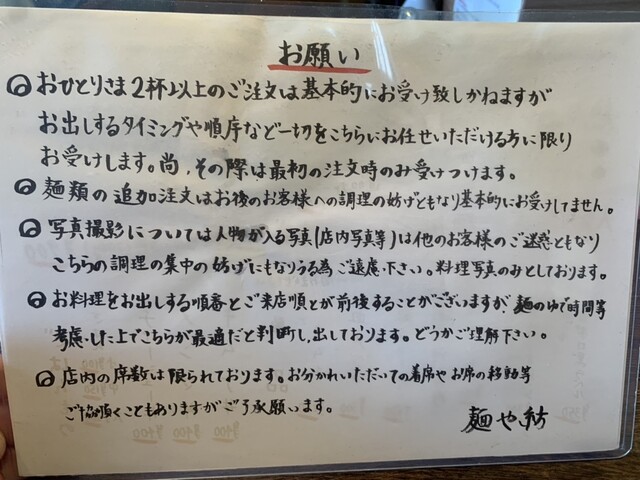 お願い
おひとりさま2杯以上のご注文は基本的にお受け致しかねますが
お出しするタイミングや順序など一切をこちらにお任せいただける方に限り
お受けします。尚、その際は最初の注文時のみ受けつけます。
麺類の追加注文はお後のお客様への調理の妨げともなり基本的にお受けしてません。
写真撮影については人物が入る写真(店内写真等)は他のお客様のご迷惑ともなり
こちらの調理の集中の妨げにもなりうる為ご遠慮下さい。料理写真のみとしております。
お料理をお出しする順番とご来店順とが前後することがございますが、麺のゆで時間等
考慮した上でこちらが最適だと判断し出しております。どうかご理解下さい。
店内の席数は限られております。お分かれいただいての着席やお席の移動等
ご協力頂くこともありますがご了承願います。
麺や紡